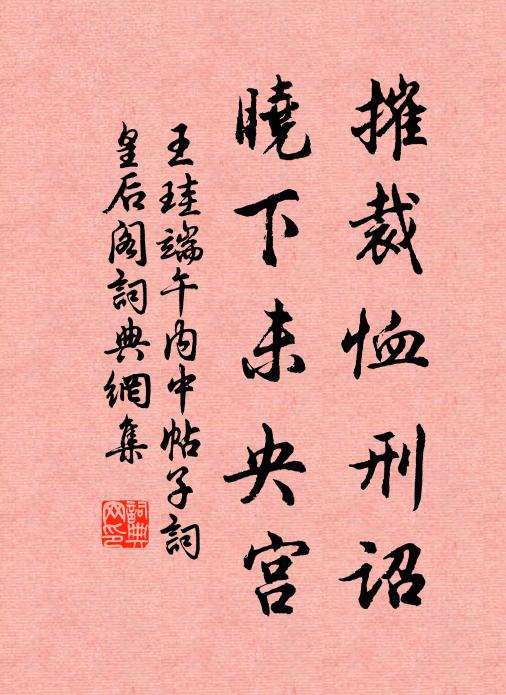 摧裁恤刑詔
曉下未央宮
王珪端午內中帖子詞
皇后阁詞典網集
詞典网印